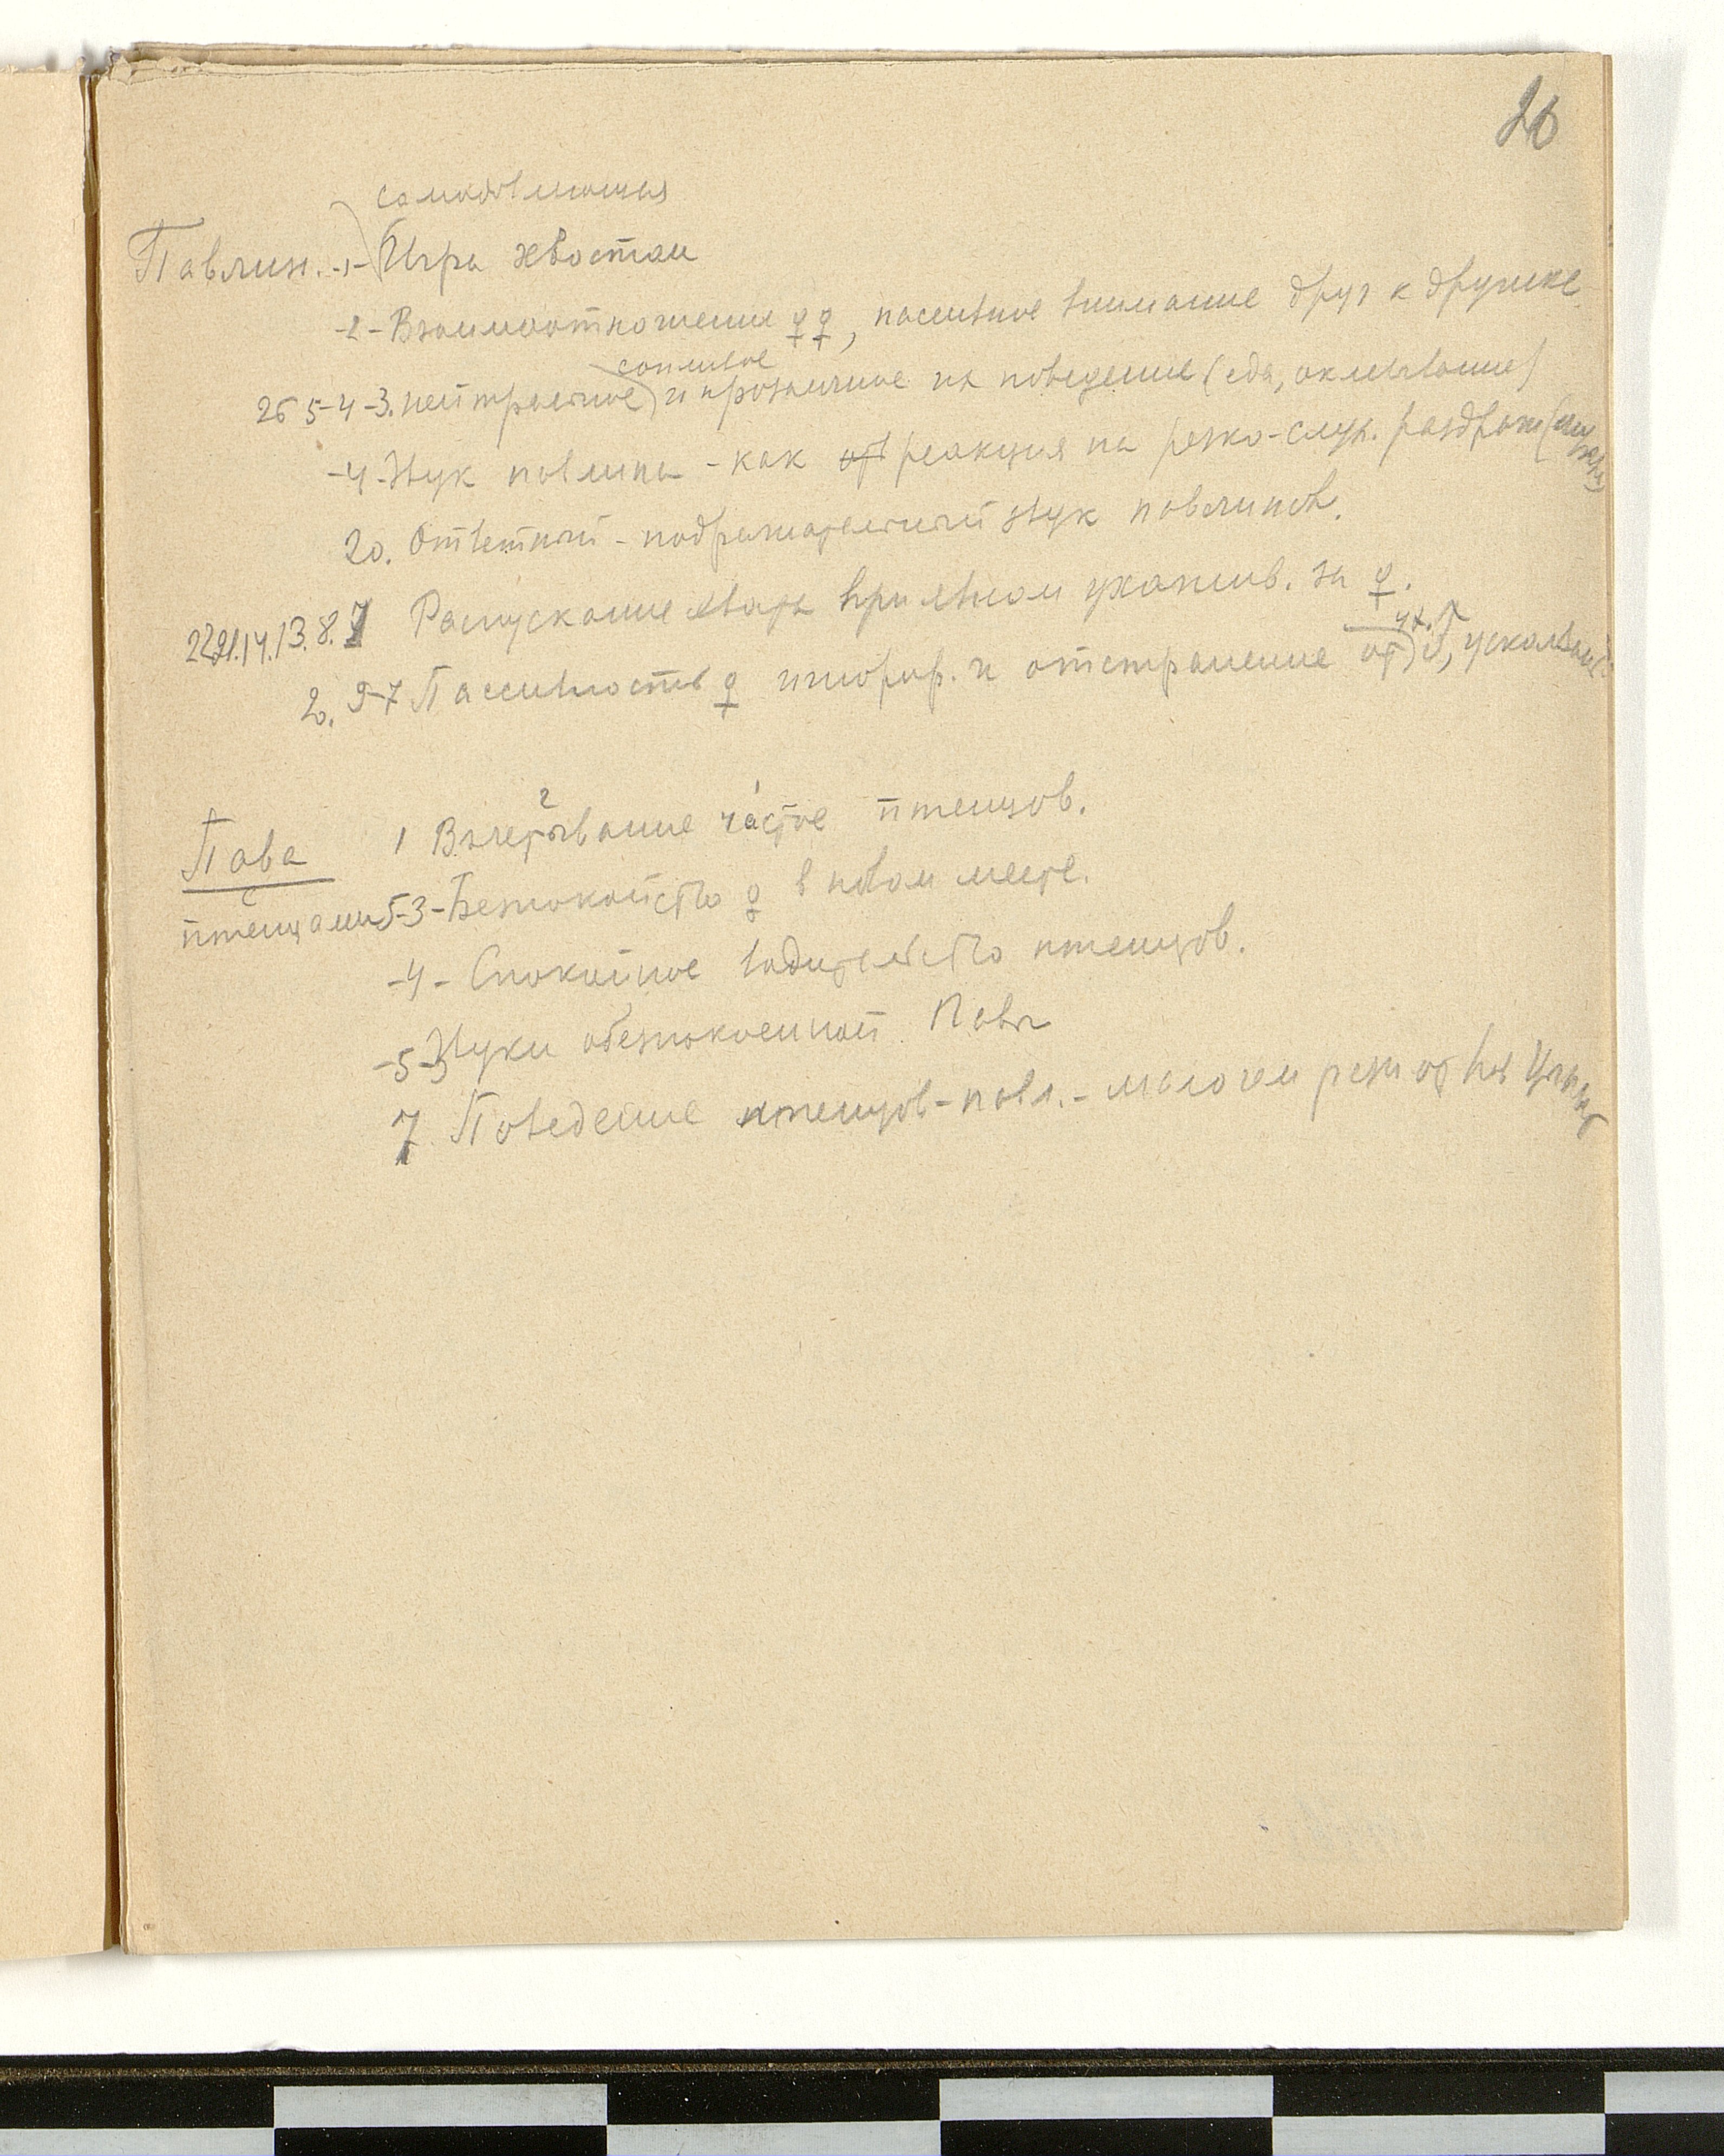 26
самодовлеющая
Павлин. -1- Игра хвостом
-2- Взаимоотношения ♀♀, пассивное внимание друг к дружке
сонливое
26 5-4-3. нейтральное и прозаичное их поведение (еда, оклевывание)
-4- Звук павлина - как реакция на резко-слух. раздраж
20. Ответный - подражательный звук павлинов.
22.21.14.13.8.7 Распускание хвоста при ухажив. за ♀.
ух. ♂
2. 9-7 Пассивность ♀ игнорир. и отстранение от ♂,
2 1
Пава 1 Взлетывание частое птенцов.
с
птенцами 5-3- Безпокойство ♀ в новом месте.
-4- Спокойное водительство птенцов.
-5-3 Звуки обезпокоенной Павы
7 Поведение птенцов-павл. - мало чем разн от